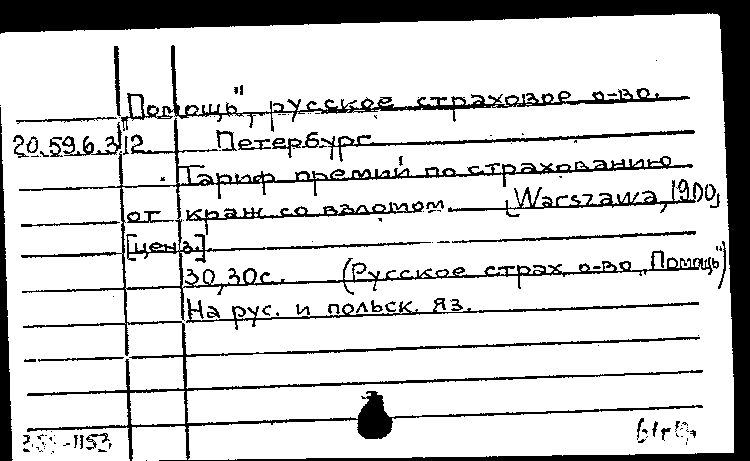 Помощь", русское страховое о-во.
20.59.6.312 Петербург
Тариф премий по страхованию
от краж со взломом. [Warszawa, 1900]
[ценз.].
30,30с. (Русское страх. о-во „Помощь")
На рус. и польск. яз.
-1153